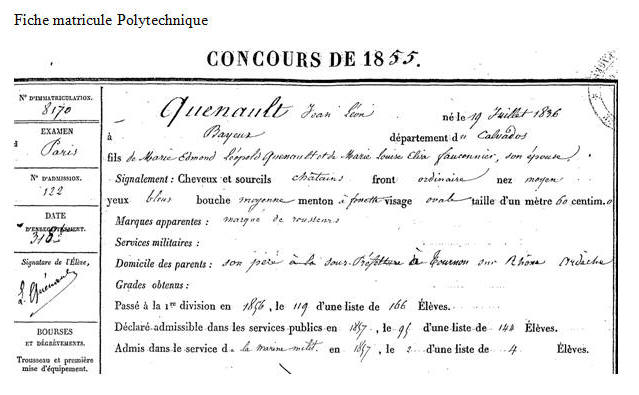 Fiche matricule Polytechnique
CONCOURS DE 1855.
N° D'IMMATRICULATION.
8170
EXAMEN
Paris
N° D'ADMISSION.
122
DATE
D'ENREGISTREMENT.
Signature de l'Élève,
L. Quénault
BOURSES
ET DÉGRÈVEMENTS.
Trousseau et première
mise d'équipement.
Quenault Jean Léon né le 19 Juillet 1836
à Bayeux département du Calvados
fils de Marie Edmond Léopold Quenault et de Marie Louise Elisa fauconnier, son épouse.
Signalement : Cheveux et sourcils chatains front ordinaire nez moyen
yeux bleus bouche moyenne menton à fossette visage ovale taille d'un mètre 60 centim.
Marques apparentes : marqué de rousseurs
Services militaires :
Domicile des parents : son père à la sous-Préfecture à Tournon sur Rhône Ardèche
Grades obtenus :
Passé à la 1re division en 1856, le 119 d'une liste de 166 Élèves.
Déclaré admissible dans les services publics en 1857, le 95 d'une liste de 144 Élèves.
Admis dans le service de la marine milit. en 1857, le 2 d'une liste de 4 Élèves.